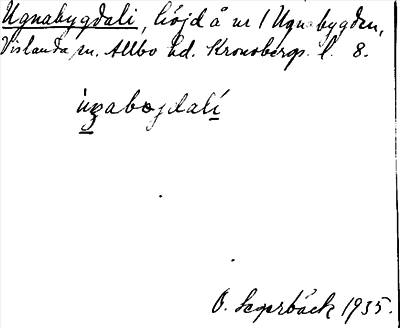 Ugnabygdali, höjd å nr 1 Ugnabygden,
Vislanda sn. Allbo hd. Kronobergs l. 8.
ùgabogdalí
O. Lagerbäck 1935.